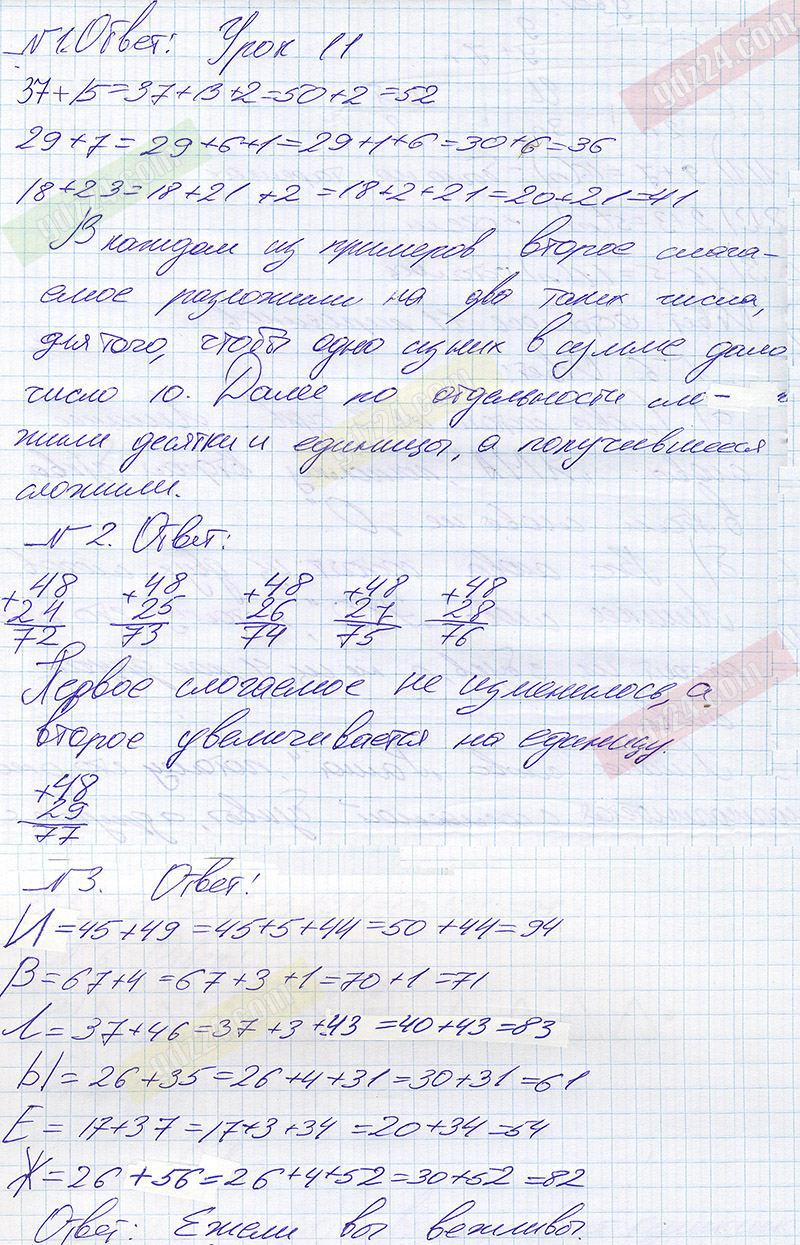 №1. Ответ: Урок 11
gdz24.com
37+15=37+13+2=50+2=52
29+7=29+6+1=29+1+6=30+6=36
18+23=18+21+2=18+2+21=20+21=41
gdz24.com
В каждом из примеров второе слага-
емое разложили на два таких числа,
для того, чтобы одно из них в сумме дало
число 10. Далее по отдельности сло-
gdz24.com
жили десятки и единицы, а получившееся
сложили.
№2. Ответ:
+48 +48 +48 +48 +48
24 25 26 27 28
72 73 74 75 76
Первое слогаемое не изменилось, а
gdz24.com
второе увеличивается на единицу.
+48
29
77
№3. Ответ:
И=45+49=45+5+44=50+44=94
В=67+4=67+3+1=70+1=71
gdz24.com
Л=37+46=37+3+43=40+43=83
Ы=26+35=26+4+31=30+31=61
Е=17+37=17+3+34=20+34=54
Ж=26+56=26+4+52=30+52=82
Ответ: Ежели вы вежливы.